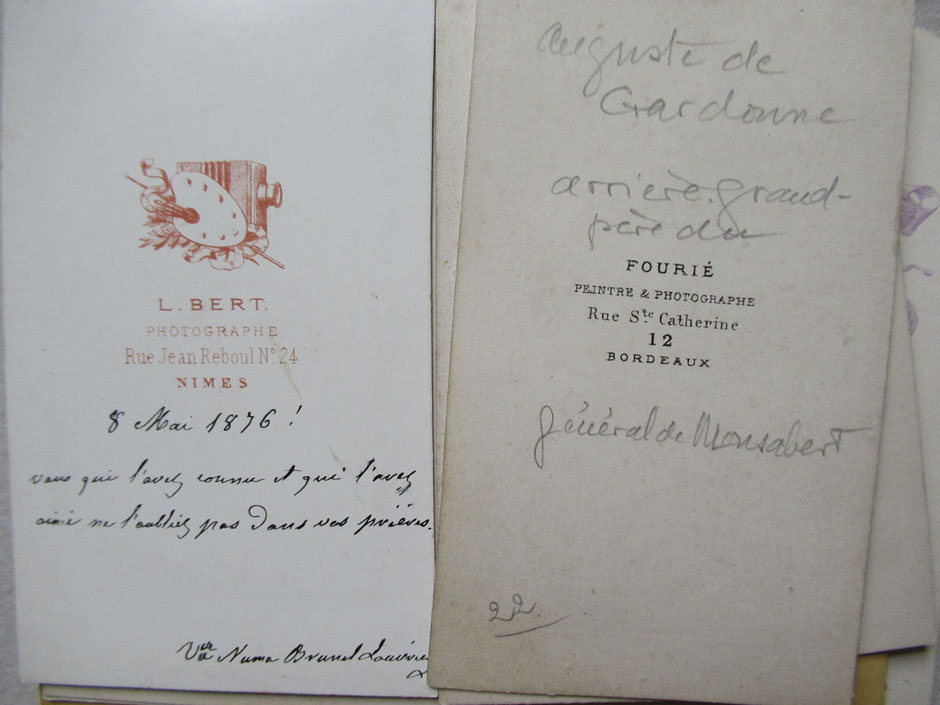 L. BERT.
PHOTOGRAPHE
Rue Jean Reboul N° 24
NIMES
8 Mai 1876 !
vous qui l'avez connue et qui l'avez
aimé ne l'oubliez pas Dans vos prières.
Numa Brunel
auguste de
Gardonne
arrière-grand-
père du
FOURIÉ
PEINTRE & PHOTOGRAPHE
Rue Ste Catherine
12
BORDEAUX
général de Monsabert
22.